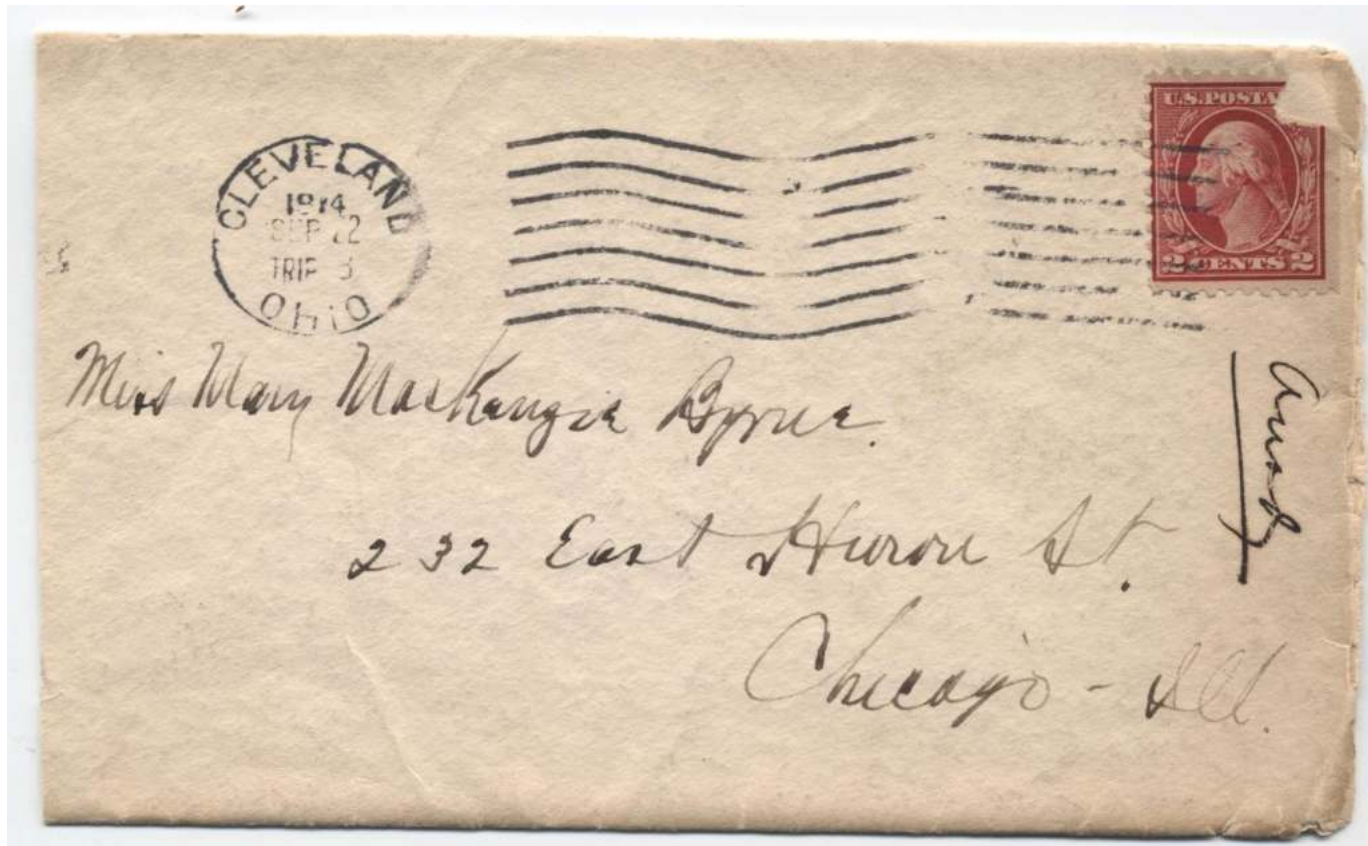 CLEVELAND
1914
SEP 22
TRIP 3
OHIO
U.S. POSTA
2 CENTS 2
Miss Mary MacKenzie Byrne.
232 East Huron St.
Chicago - Ill.
Ansd